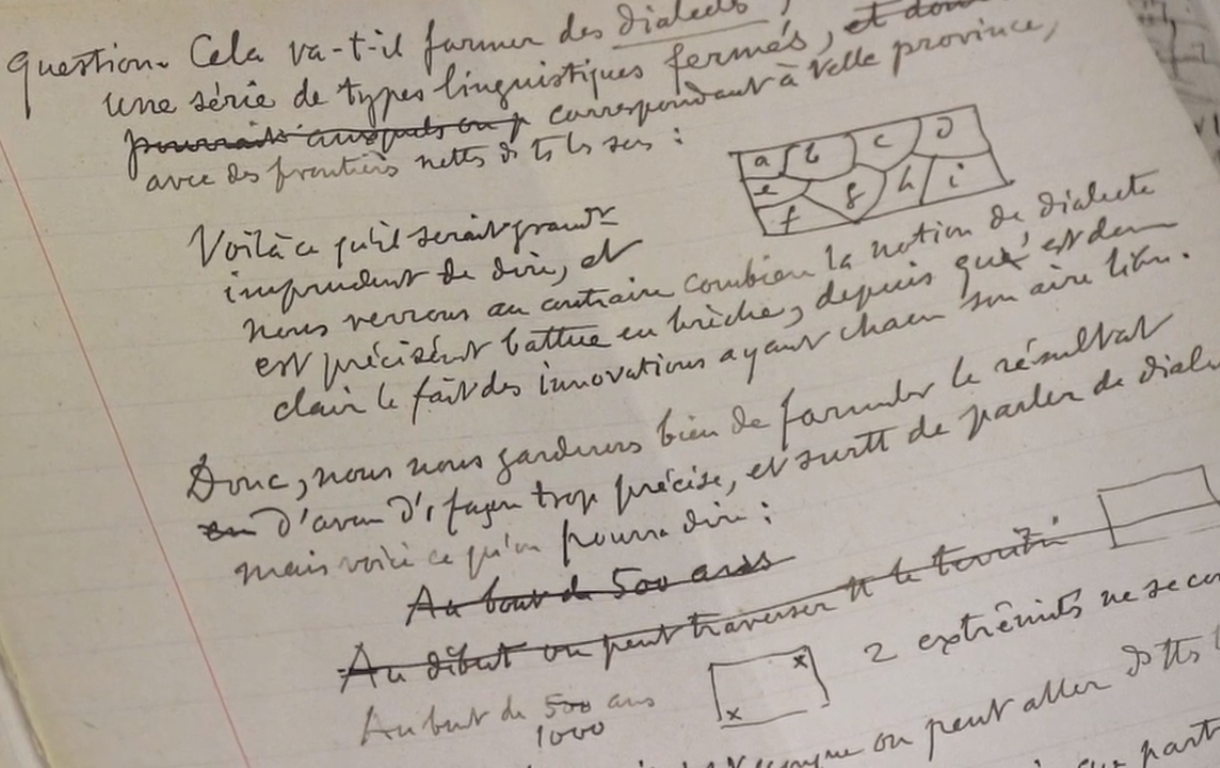 Question. Cela va-t-il former des dialects,
une série de types linguistiques fermés, et don
pourrait auxquels on p correspondant à telle province,
avec des frontières nettes ds ts ls sens :
a b c D
e f g h i
Voilà ce qu'il serait grandt
imprudent de dire, et
nous verrons au contraire combien la notion de dialecte
est précisémt battue en brèche, depuis qu' est dem
clair le fait des innovations ayant chacune son aire libre.
Donc, nous nous garderons bien de formuler le résultat
en d'avan d'1 façon trop précise, et surtt de parler de diale
mais voici ce qu'on pourra dire :
Au bout de 500 ans
Au début on peut traverser tt le territoire
Au bout de 500 ans
1000
x x
2 extrémités ne se co
on peut aller ds tts l
part